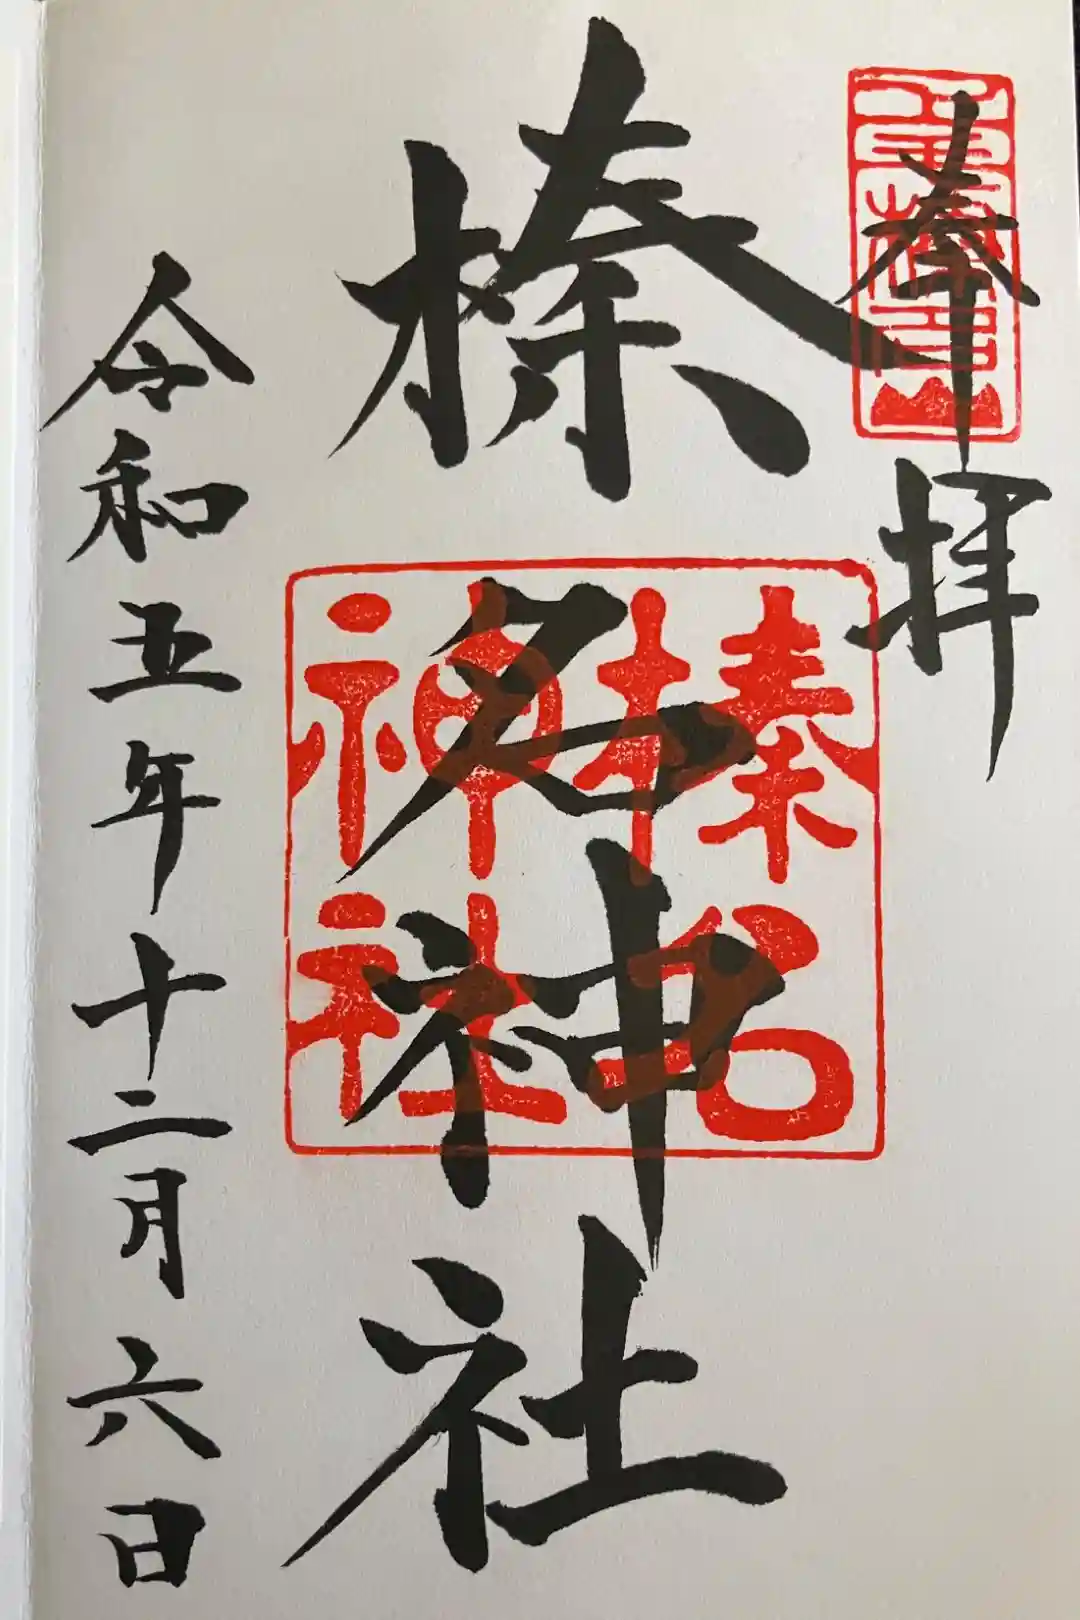 奉拝
榛名神社
令和五年十二月六日
榛名
神社